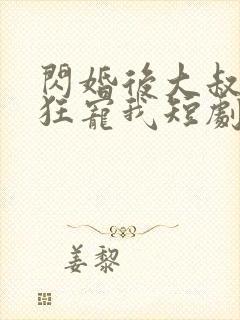 閃婚後大叔
狂寵我短劇
姜黎